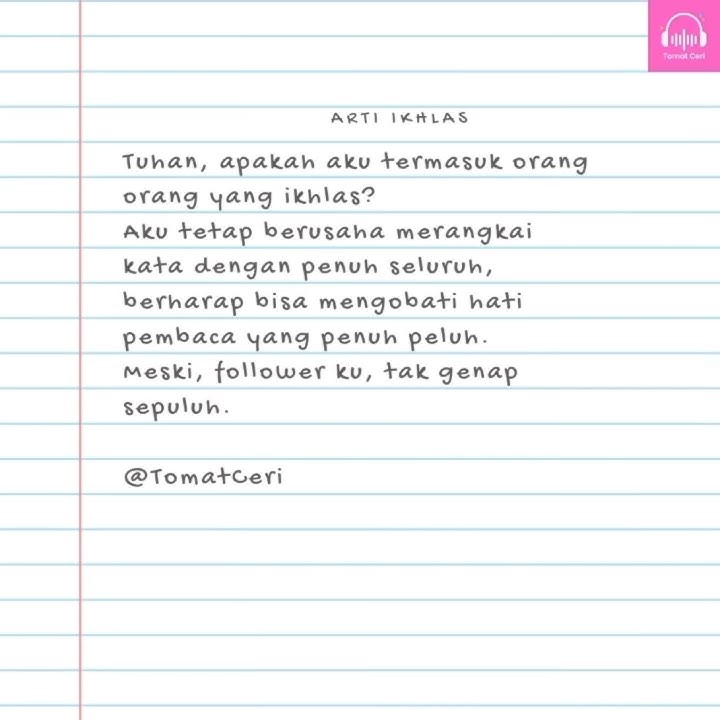 Tomat Ceri
ARTI IKHLAS
Tuhan, apakah aku termasuk orang
orang yang ikhlas?
Aku tetap berusaha merangkai
kata dengan penuh seluruh,
berharap bisa mengobati hati
pembaca yang penuh peluh.
Meski, follower ku, tak genap
sepuluh.
@TomatCeri